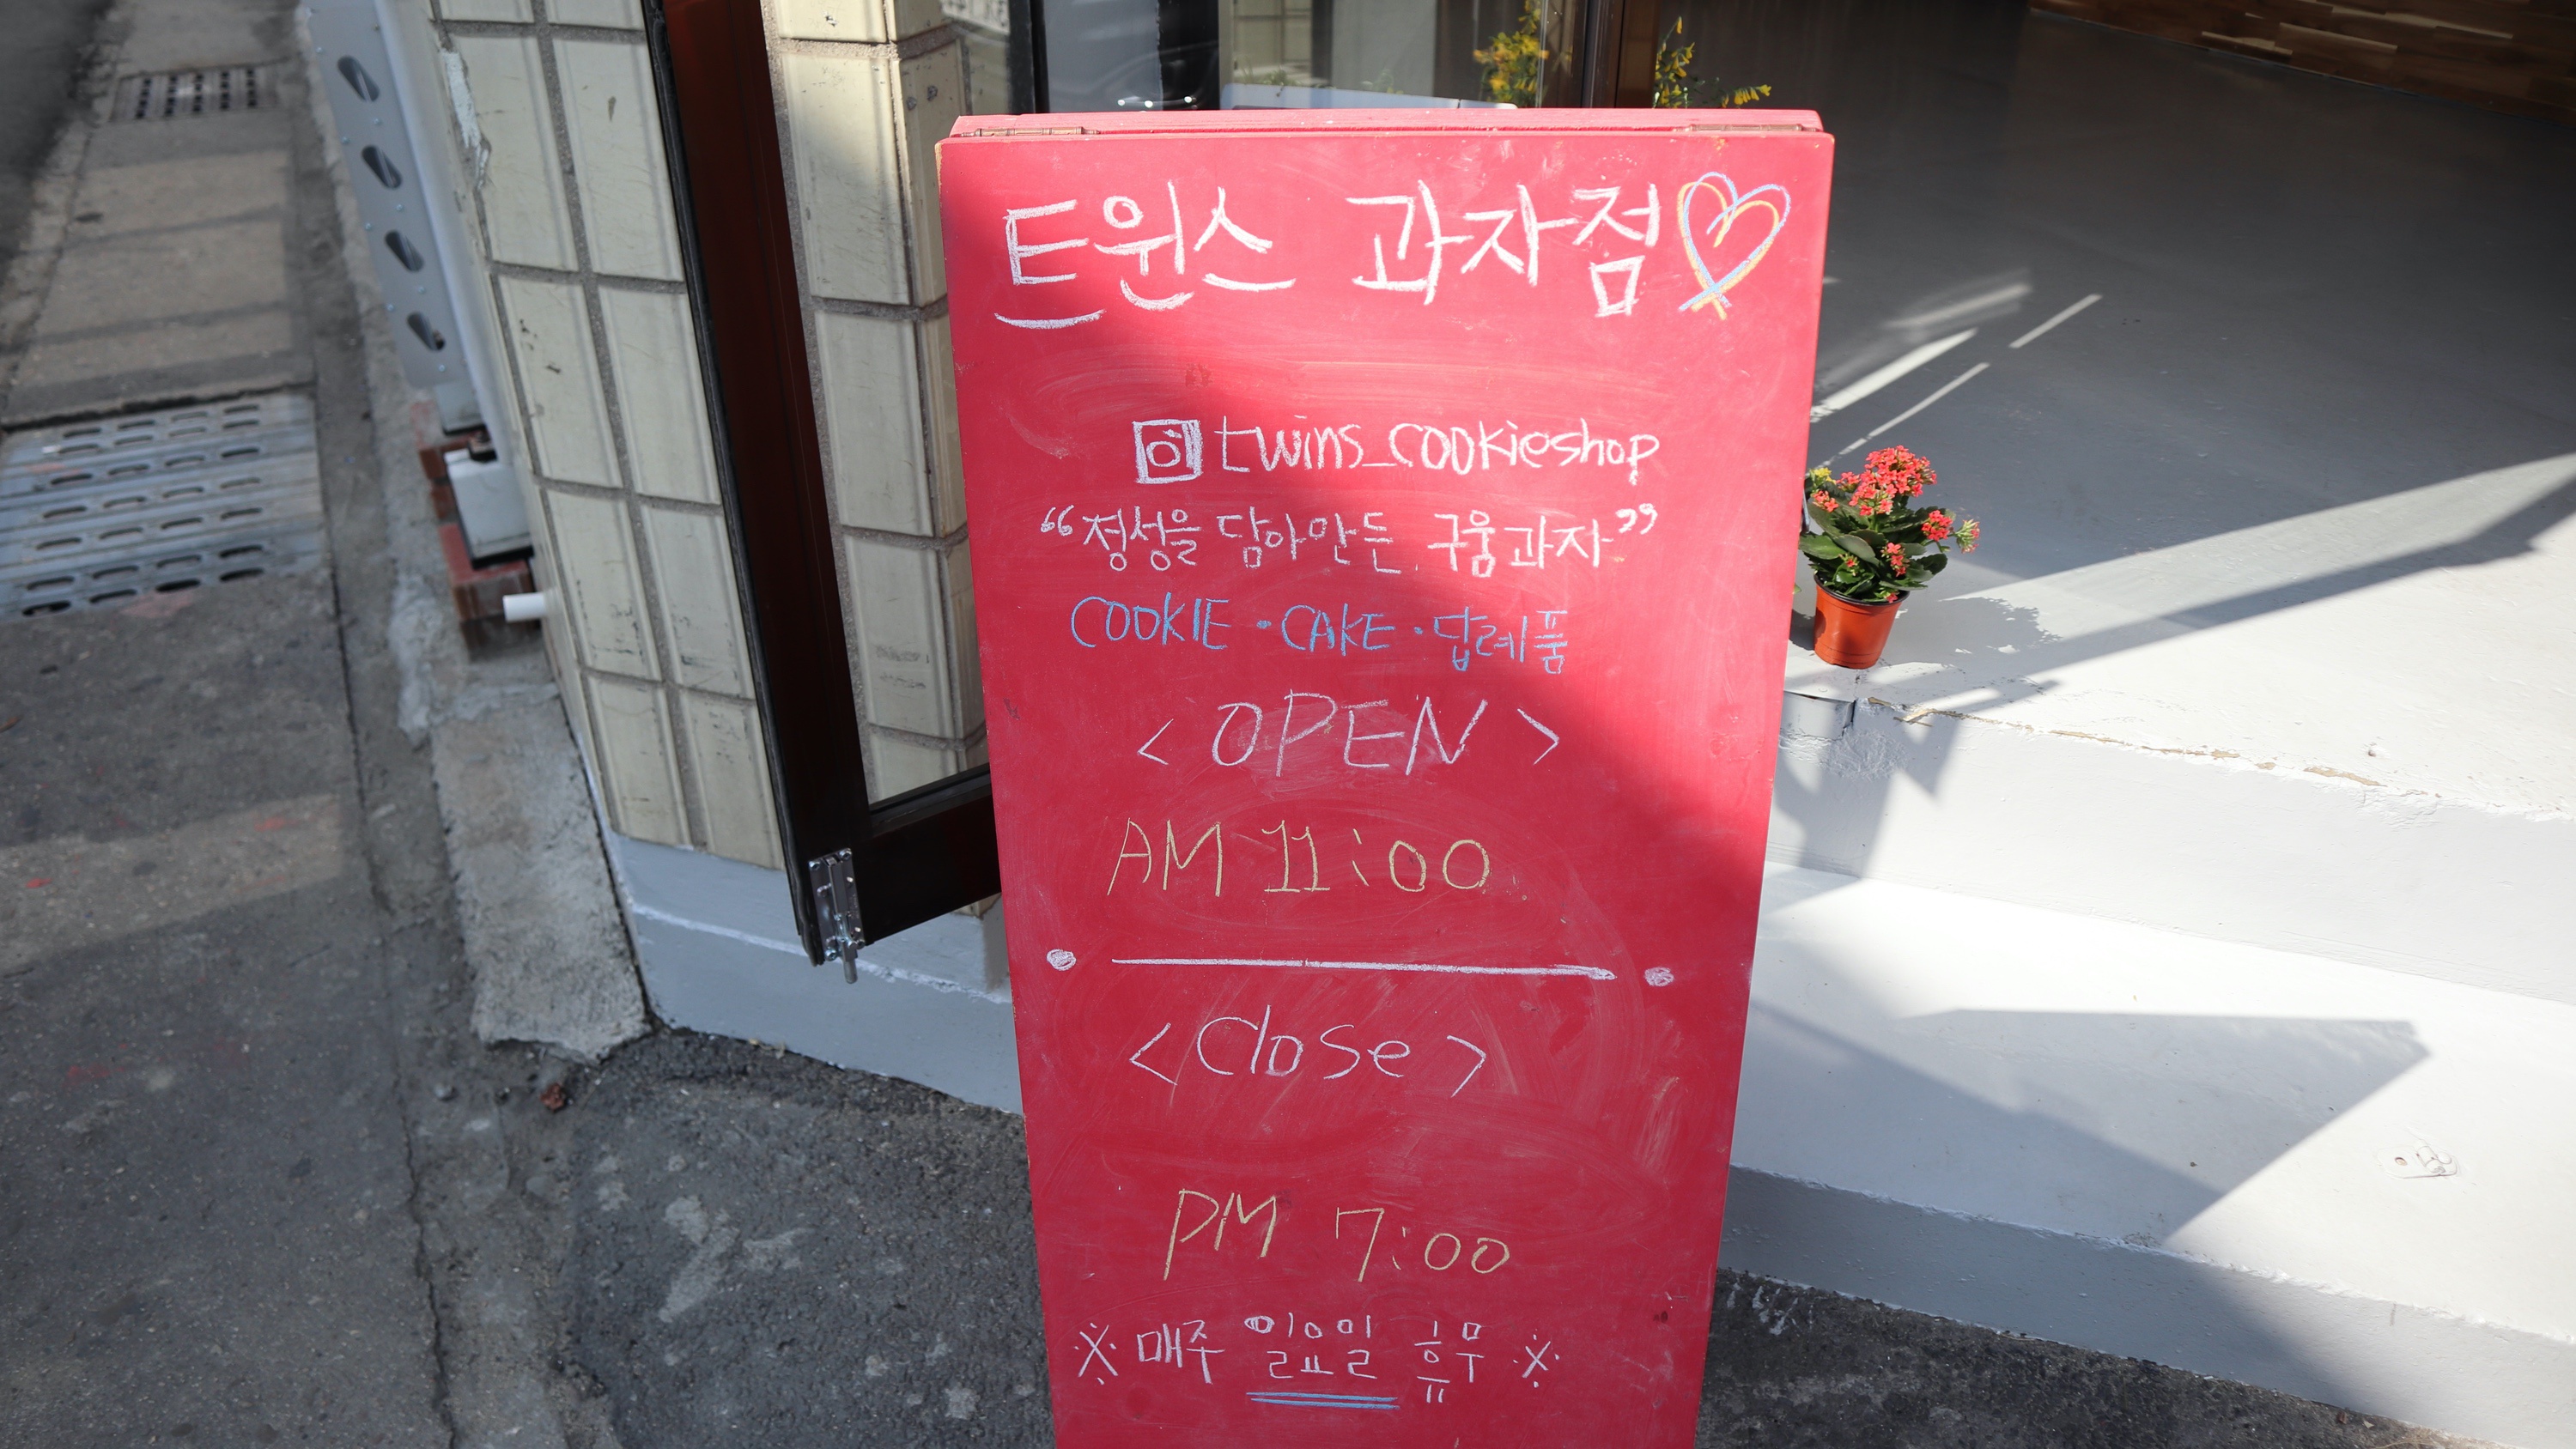 트윈스 과자점
twins_cookieshop
“정성을 담아 만든, 구움과자”
COOKIE · CAKE · 답례품
< OPEN >
AM 11:00
< Close >
PM 7:00
※ 매주 일요일 휴무 ※